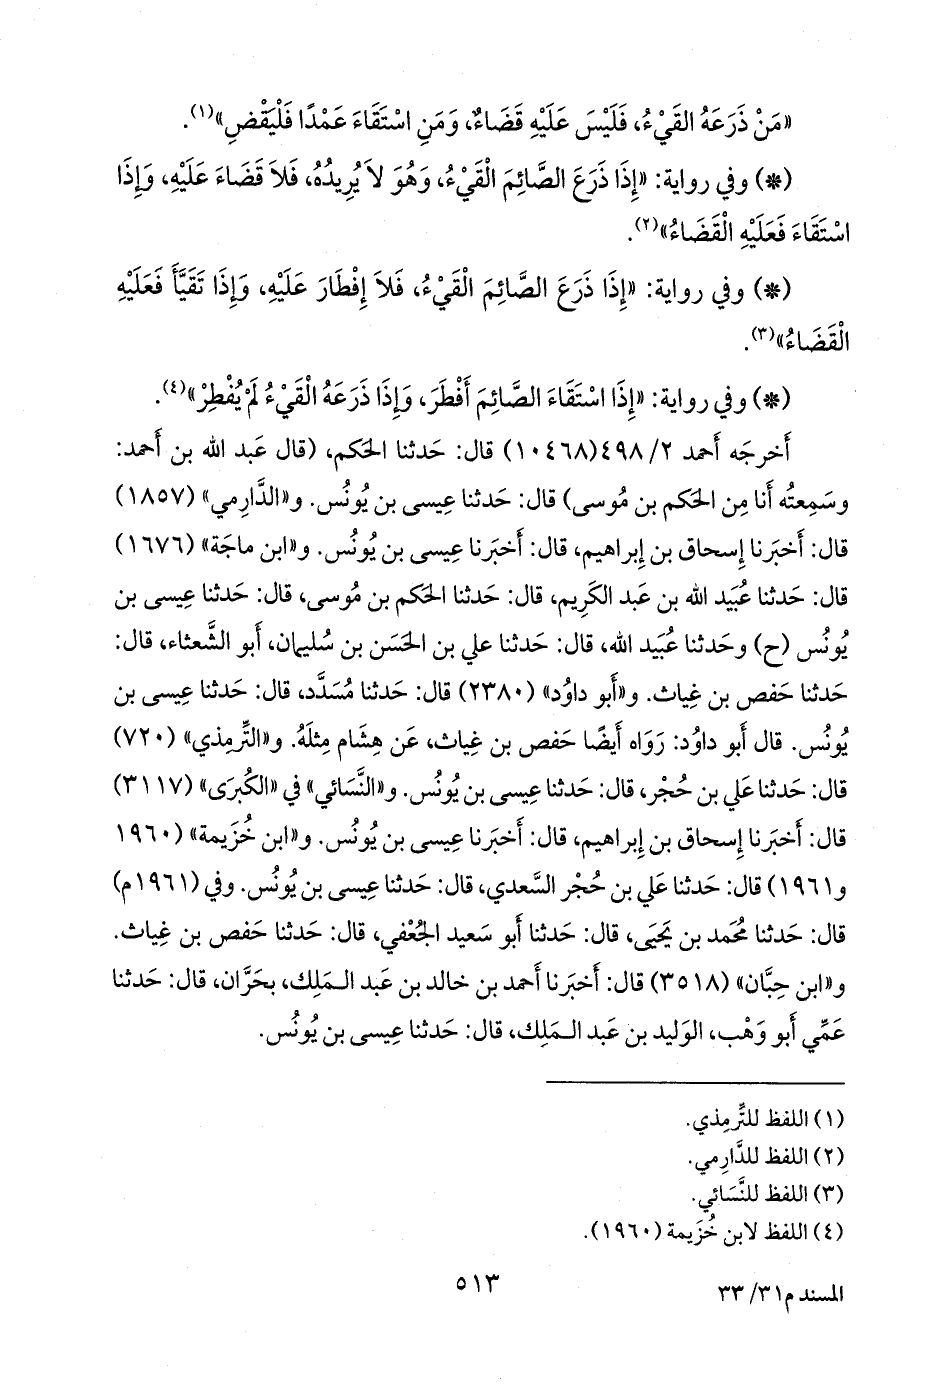 «مَنْ ذَرَعَهُ القَيْءُ، فَلَيْسَ عَلَيْهِ قَضَاءٌ، وَمَنِ اسْتَقَاءَ عَمْدًا فَلْيَقْضِ»(١).
(*) وفي رواية: «إِذَا ذَرَعَ الصَّائِمَ الْقَيْءُ، وَهُوَ لاَ يُرِيدُهُ، فَلاَ قَضَاءَ عَلَيْهِ، وَإِذَا
اسْتَقَاءَ فَعَلَيْهِ الْقَضَاءُ»(٢).
(*) وفي رواية: «إِذَا ذَرَعَ الصَّائِمَ الْقَيْءُ، فَلاَ إِفْطَارَ عَلَيْهِ، وَإِذَا تَقَيَّأَ فَعَلَيْهِ
الْقَضَاءُ»(٣).
(*) وفي رواية: «إِذَا اسْتَقَاءَ الصَّائِمَ أَفْطَرَ، وَإِذَا ذَرَعَهُ الْقَيْءُ لَمْ يُفْطِرْ»(٤).
أَخرجَه أَحمد ٢/ ٤٩٨(١٠٤٦٨) قال: حَدثنا الحَكم، (قال عَبد الله بن أَحمد:
وسَمِعتُه أَنا مِن الحَكم بن مُوسى) قال: حَدثنا عِيسى بن يُونُس. و«الدَّارِمي» (١٨٥٧)
قال: أَخبَرنا إِسحاق بن إِبراهيم، قال: أَخبَرنا عِيسى بن يُونُس. و«ابن ماجَة» (١٦٧٦)
قال: حَدثنا عُبَيد الله بن عَبد الكَرِيم، قال: حَدثنا الحَكم بن مُوسى، قال: حَدثنا عِيسى بن
يُونُس (ح) وحَدثنا عُبَيد الله، قال: حَدثنا علي بن الحَسَن بن سُليمان، أَبو الشَّعثاء، قال:
حَدثنا حَفص بن غِياث. و«أَبو داوُد» (٢٣٨٠) قال: حَدثنا مُسَدَّد، قال: حَدثنا عِيسى بن
يُونُس. قال أَبو داوُد: رَوَاه أَيضًا حَفص بن غِياث، عَن هِشَام مِثلَهُ. و«التِّرمِذي» (٧٢٠)
قال: حَدثنا عَلي بن حُجْر، قال: حَدثنا عِيسى بن يُونُس. و«النَّسَائي» في «الكُبرَى» (٣١١٧)
قال: أَخبَرنا إِسحاق بن إِبراهيم، قال: أَخبَرنا عِيسى بن يُونُس. و«ابن خُزَيمة» (١٩٦٠
و١٩٦١) قال: حَدثنا عَلي بن حُجْر السَّعدي، قال: حَدثنا عِيسى بن يُونُس. وفي (١٩٦١م)
قال: حَدثنا مُحَمد بن يَحيَى، قال: حَدثنا أَبو سَعيد الجُعْفي، قال: حَدثنا حَفص بن غِياث.
و«ابن حِبَّان» (٣٥١٨) قال: أَخبَرنا أَحمد بن خالد بن عَبد الـمَلِك، بحَرَّان، قال: حَدثنا
عَمِّي أَبو وَهْب، الوَليد بن عَبد الـمَلِك، قال: حَدثنا عِيسى بن يُونُس.
(١) اللفظ للتِّرمِذي.
(٢) اللفظ للدَّارِمي.
(٣) اللفظ للنَّسَائي.
(٤) اللفظ لابن خُزَيمة (١٩٦٠).
٥١٣
المسند م٣١/ ٣٣